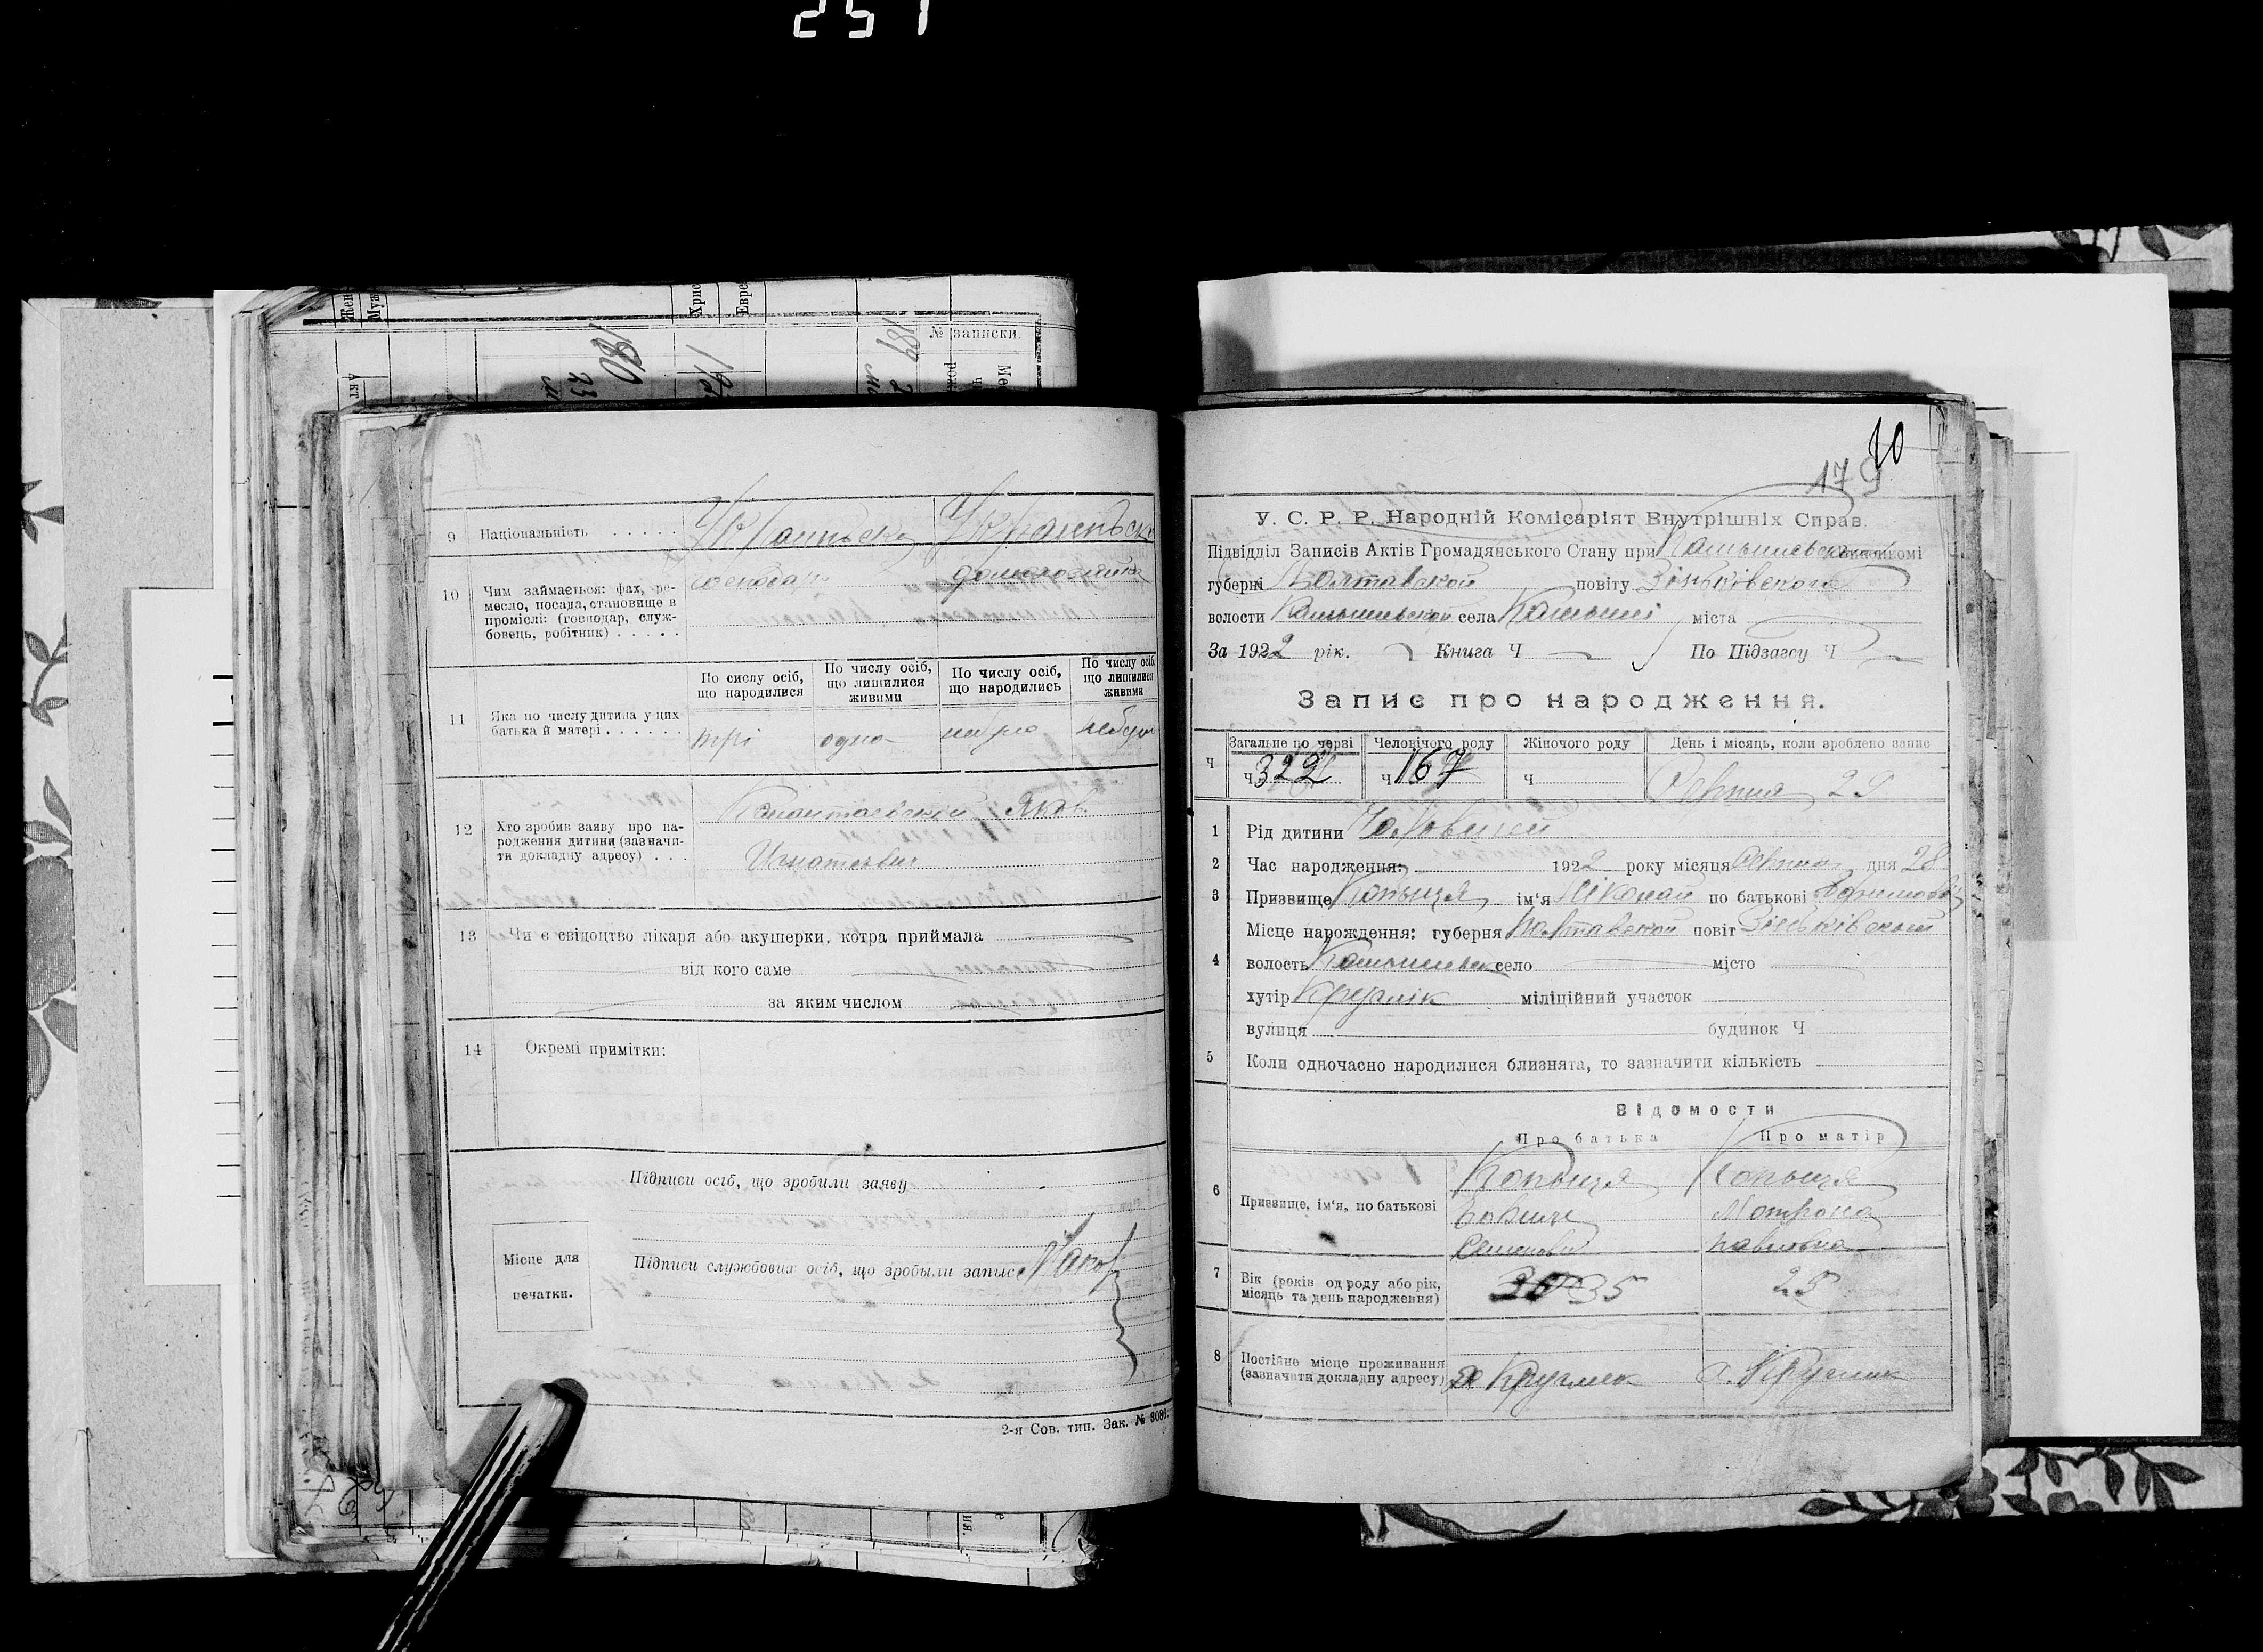 251
Жен
Муж
Хрис
Евре
№ записки.
180
189
9 Національність . . . . .
Українська Українська
10 Чим займається: фах, ре-
месло, посада, становище в
проміслі: (господар, служ-
бовець, робітник) . . . . .
господар домогозяйка
11 Яка по числу дитина у цих
батька й матері . . . . . .
По сислу осіб, що народилися
По числу осіб, що лишилися живими
По числу осіб, що народились
По числу осіб, що лишилися живими
трі одна
12 Хто зробив заяву про на-
родження дитини (зазначи-
ти докладну адресу) . . .
Яків
Игнатевич
13 Чи є свідоцтво лікаря або акушерки, котра приймала
від кого саме
за яким числом
14 Окремі примітки:
Підписи осіб, що зробили заяву
Місце для
печатки.
Підписи службових осіб, що зробыли запис
2-я Сов. тип. Зак. №
179
У. С. Р. Р. Народній Комісаріят Внутрішніх Справ.
Підвідділ Записів Актів Громадянського Стану при
губерні Полтавской повіту Зіньківского
волости Камышевской села Камыші міста
За 1922 рік. Книга Ч По Підзагсу Ч
Запис про народження.
Ч
Загальне по черзі
Человічого роду
Жіночого роду
День і місяць, коли зроблено запис
ч 322 ч 167 ч Серпня 29
1 Рід дитини Чоловичей
2 Час народження: 1922 року місяця Серпня дня 28
3 Призвище Копыця ім'я Ніколай по батькові
4 Місце народження: губерня Полтавской повіт Зіньківский
волость Камышевск село місто
хутір Круглік міліційний участок
вулиця будинок Ч
5 Коли одночасно народилися близнята, то зазначити кількість
Відомости
Про батька Про матір
6 Призвище, ім'я, по батькові
Копыця Копыця
Мотрона
Семенови Павловна
7 Вік (років од роду або рік,
місяць та день народження)
35 25
8 Постійне місце проживання
(зазначити докладну адресу)
х Круглик х. Круглик